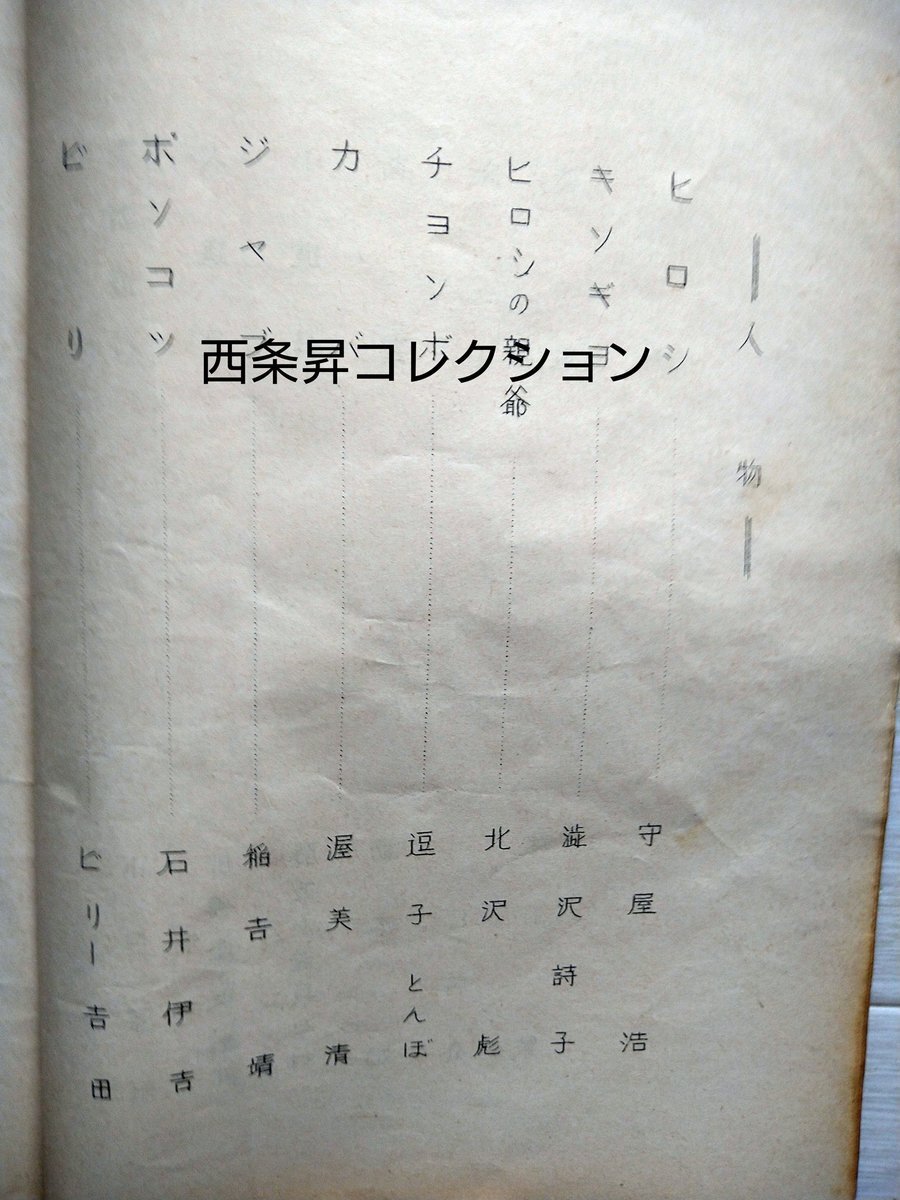 ―人物―
ヒロシ………守屋浩
キンギョ………澁沢詩子
ヒロシの親爺………北沢彪
チョンボ………逗子とんぼ
カバ………渥美清
ジャズ………稲吉靖
ポンコツ………石井伊吉
ビリ………ビリー吉田
西条昇コレクション